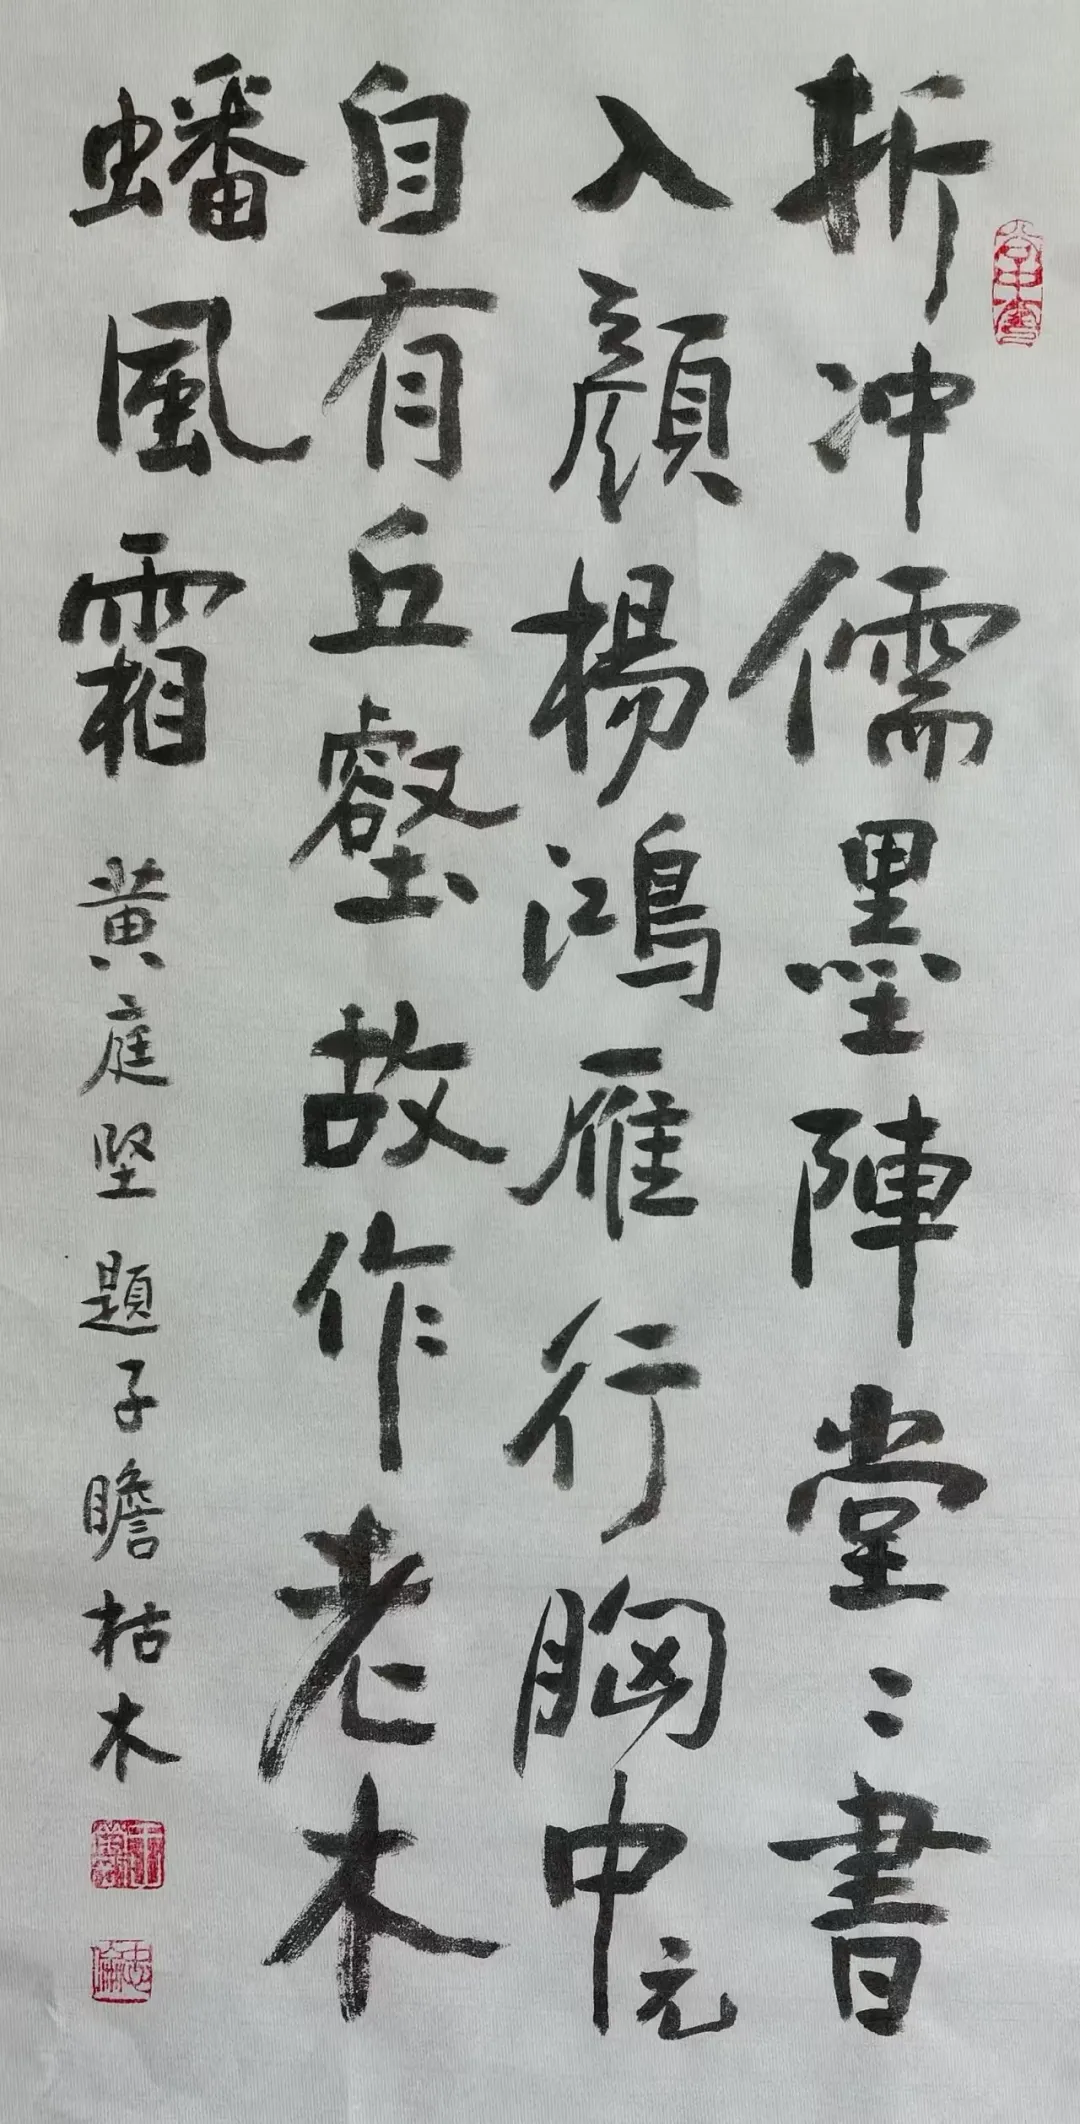 折冲儒墨陣堂〻書
入顏楊鴻雁行胸中元
自有丘壑故作老木
蟠風霜
黄庭坚 題子瞻枯木